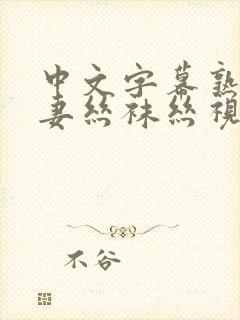 中文字幕熟
妻丝袜丝视
不谷